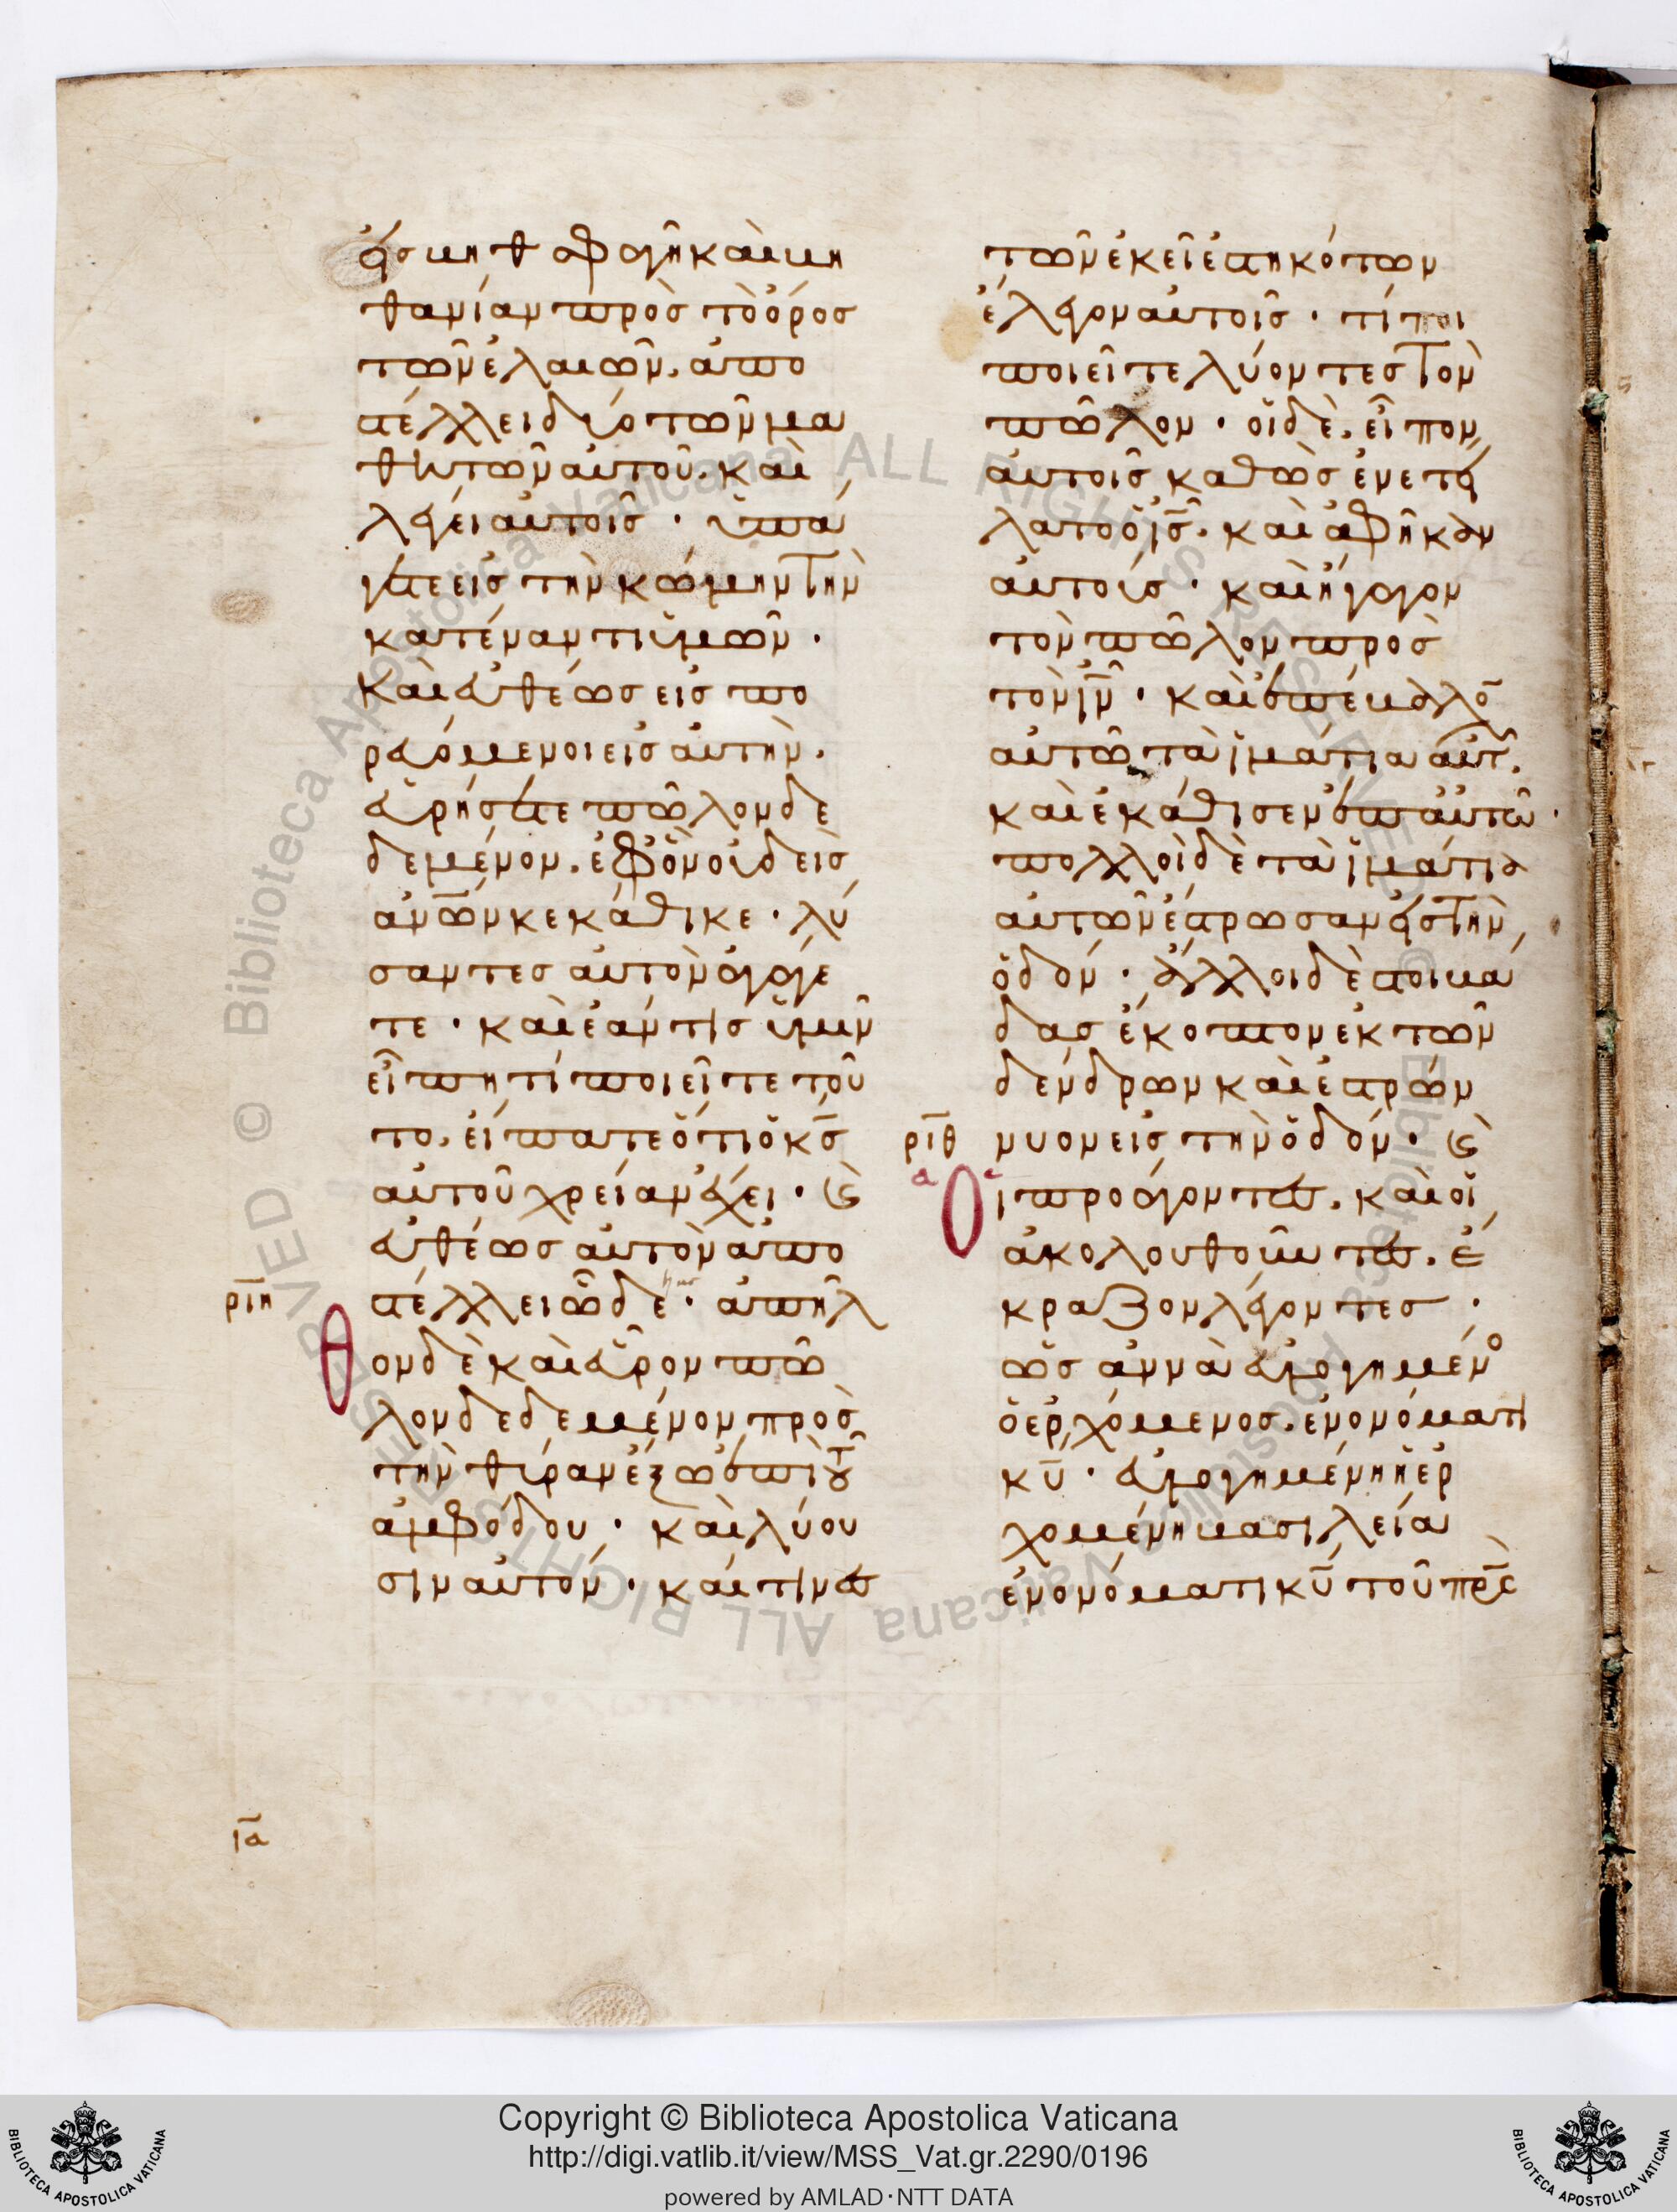 εἰς βηθφαγῆ καὶ βη
θανίαν πρὸς τὸ ὄρος
τῶν ἐλαιῶν. ἀπο
στέλλει δύο τῶν μα
θητῶν αὐτοῦ. καὶ
λέγει αὐτοῖς · ὑπά
γετε εἰς τὴν κώμην τὴν
κατέναντι ὑμῶν ·
καὶ εὐθέως εἰσπο
ρευόμενοι εἰς αὐτὴν.
εὑρήσετε πῶλον δε
δεμένον. ἐφ ὃν οὐδεὶς
ἀνων κεκάθικε · λύ
σαντες αὐτὸν ἀγάγε
τε · καὶ ἐάν τις ὑμῖν
εἴπη τί ποιεῖτε τοῦ
το. εἴπατε ὅτι ὁ κς
αὐτοῦ χρείαν ἔχει · ϗ
εὐθέως αὐτὸν ἀπο
ριη
στέλλει ὧδε · ἀπῆλ
θον δὲ καὶ εὗρον πῶ
λον δεδεμένον πρὸς
τὴν θύραν ἔξω ἐπὶ τοῦ
ἀμφόδου · καὶ λύου
σιν αὐτόν · καί τινες
ια
τῶν ἐκεῖ ἑστηκότων
ἔλεγον αὐτοῖς · τί ποι
ποιεῖτε λύοντες τὸν
πῶλον · οἱ δὲ. εἶπον
αὐτοῖς καθὼς ἐνετεί
λατο ὁ ις. καὶ ἀφῆκαν
αὐτούς · καὶ ἤγαγον
τὸν πῶλον πρὸς
τὸν ιν · καὶ ἐπέβαλον
αὐτῶ τὰ ἱμάτια αὐτῶν.
καὶ ἐκάθισεν ἐπ αὐτῶ ·
πολλοὶ δὲ τὰ ἱμάτια
αὐτῶν ἔστρωσαν εἰς τὴν
ὁδόν · ἄλλοι δὲ στοιβά
δας ἔκοπτον ἐκ τῶν
δένδρων καὶ ἐστρών
ριθ
νυον εἰς τὴν ὁδόν · ϗ
οἱ προάγοντες. καὶ οἱ
ἀκολουθοῦντες. ἔ
κραζον λέγοντες ·
ὡσαννὰ εὐλογημένος
ὁ ἐρχόμενος. ἐν ὀνόματι
κυ · εὐλογημένη ἡ ἐρ
χομένη βασιλεία
ἐν ὀνόματι κυ τοῦ πρς
© Biblioteca Apostolica Vaticana ALL RIGHTS RESERVED
Copyright © Biblioteca Apostolica Vaticana
http://digi.vatlib.it/view/MSS_Vat.gr.2290/0196
powered by AMLAD·NTT DATA
BIBLIOTECA APOSTOLICA VATICANA
BIBLIOTECA APOSTOLICA VATICANA